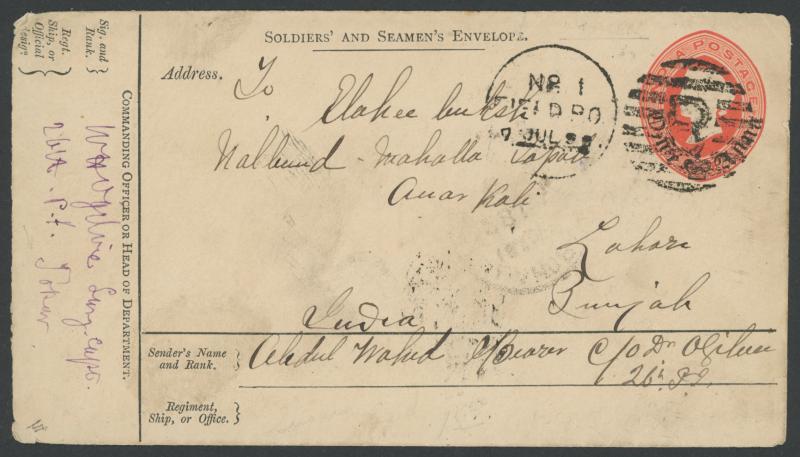 SOLDIERS' AND SEAMEN'S ENVELOPE.
INDIA POSTAGE
No. 1
FIELD P.O.
7 JUL 98
Address.
To
Elahee buksh
Nalbund Mahalla
Anar Kali
Lahore
Punjab
India
Sender's Name and Rank.
Abdul Wahid Bearer C/o Dr Ogilvie
26th P.I.
Regiment, Ship, or Office.
Sig. and Rank.
Regt. Ship, or Official desig.
COMMANDING OFFICER OR HEAD OF DEPARTMENT.
Ogilvie Surg. Capt.
26th P.I.